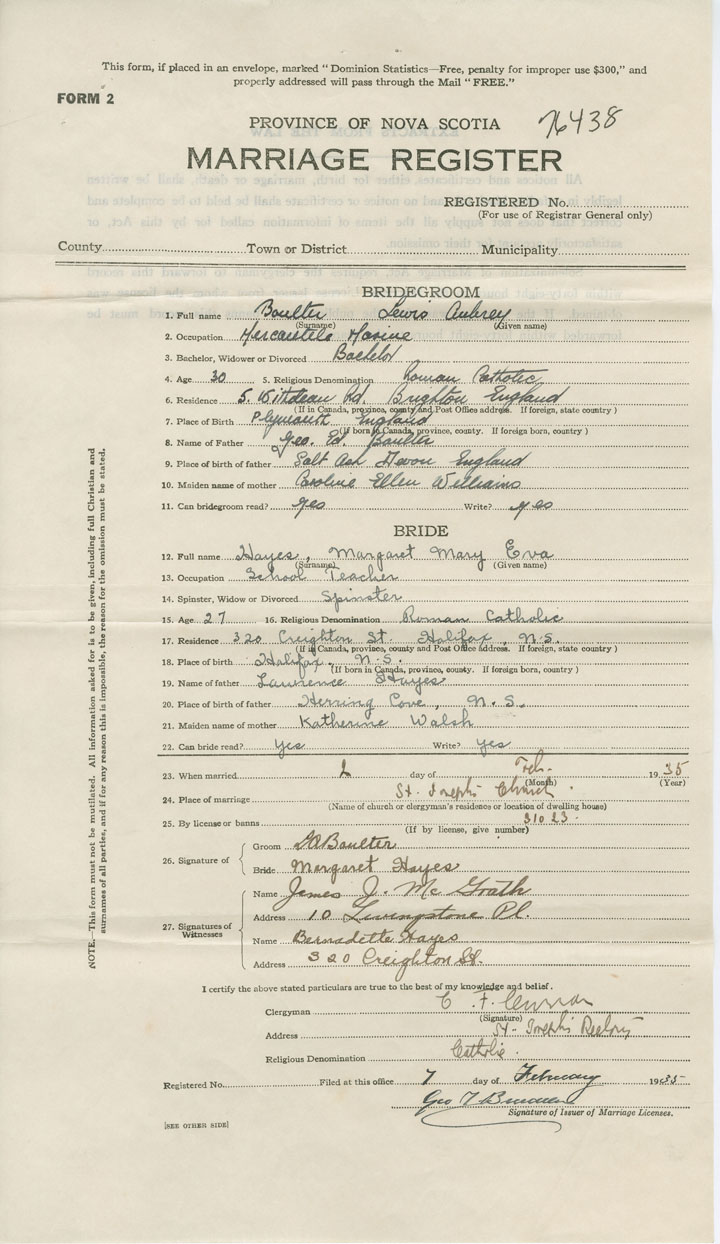 This form, if placed in an envelope, marked "Dominion Statistics—Free, penalty for improper use $300," and
properly addressed will pass through the Mail "FREE."
FORM 2
PROVINCE OF NOVA SCOTIA 76438
MARRIAGE REGISTER
REGISTERED No.
(For use of Registrar General only)
County Town or District Municipality
BRIDEGROOM
1. Full name Boulter Lewis Aubrey
(Surname) (Given name)
2. Occupation Mercantile Marine
3. Bachelor, Widower or Divorced Bachelor
4. Age 30 5. Religious Denomination Roman Catholic
6. Residence 5. Withdean Rd. Brighton England
(If in Canada, province, county and Post Office address. If foreign, state country)
7. Place of Birth Plymouth England
(If born in Canada, province, county. If foreign born, country)
8. Name of Father Geo. Ed. Boulter
9. Place of birth of father Salt Ash Devon England
10. Maiden name of mother Caroline Ellen Williams
11. Can bridegroom read? yes Write? yes
BRIDE
12. Full name Hayes, Margaret Mary Eva
(Surname) (Given name)
13. Occupation School Teacher
14. Spinster, Widow or Divorced Spinster
15. Age 27 16. Religious Denomination Roman Catholic
17. Residence 320 Creighton St. Halifax, N.S.
(If in Canada, province, county and Post Office address. If foreign, state country)
18. Place of birth Halifax, N.S.
(If born in Canada, province, county. If foreign born, country)
19. Name of father Lawrence Hayes
20. Place of birth of father Herring Cove, N.S.
21. Maiden name of mother Katherine Walsh
22. Can bride read? Yes Write? Yes
23. When married day of Feb. 1935
(Month) (Year)
24. Place of marriage St. Joseph's Church
(Name of church or clergyman's residence or location of dwelling house)
25. By license or banns 31023.
(If by license, give number)
26. Signature of
Groom Boulter
Bride Margaret Hayes
27. Signatures of Witnesses
Name James J. McGrath
Address 10 Livingstone Pl.
Name Bernadette Hayes
Address 320 Creighton St.
I certify the above stated particulars are true to the best of my knowledge and belief.
Clergyman C. F.
(Signature)
Address St. Joseph's Rectory
Religious Denomination Catholic.
Registered No. Filed at this office 7 day of February 1935
Geo
Signature of Issuer of Marriage Licenses.
[SEE OTHER SIDE]
NOTE.—This form must not be mutilated. All information asked for is to be given, including full Christian and
surnames of all parties, and if for any reason this is impossible, the reason for the omission must be stated.